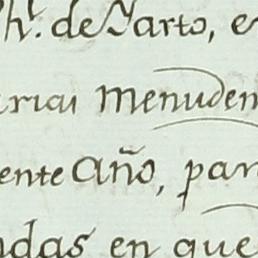 Ph.ᵗ de Yarto, e
arias Menuden
ente Año, par
ndas en que